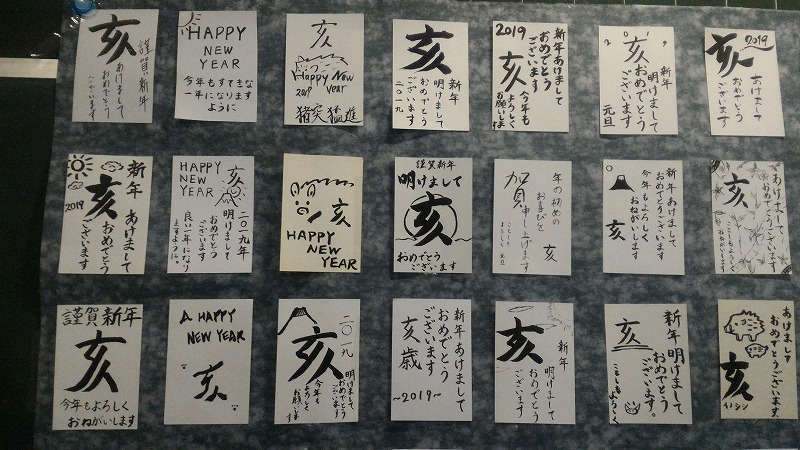 謹賀新年
亥
あけまして
おめでとう
ございます
HAPPY
NEW
YEAR
今年もすてきな
一年になります
ように
亥
Happy New
year
2019
猪突猛進
亥
新年
明けまして
おめでとう
ございます
二〇一九
2019
新年あけまして
おめでとう
ございます
亥
今年も
よろしく
お願いします
亥
新年
明けまして
おめでとう
ございます
元旦
2019
亥
あけまして
おめでとう
ございます
新年
あけまして
おめでとう
ございます
亥
2019
HAPPY
NEW
YEAR
亥
二〇一九年
明けまして
おめでとう
ございます
良い一年になり
ますように。
亥
HAPPY
NEW
YEAR
謹賀新年
明けまして
亥
おめでとう
ございます
年の初めの
お喜びを
申し上げます
賀
亥
ことしも
よろしく
元旦
新年あけまして
おめでとうございます
今年もよろしく
おねがいします
亥
あけまして
おめでとう
ございます
亥
ことしもよろしく
おねがいします
謹賀新年
亥
今年もよろしく
おねがいします
A HAPPY
NEW YEAR
亥
二〇一九
亥
明けまして
おめでとう
ございます
今年も
よろしく
お願います
新年あけまして
おめでとう
ございます
亥歳
~2019~
亥
新年
明けまして
おめでとう
ございます
新年明けまして
おめでとう
ございます。
亥
ことしもよろしく
あけまして
おめでとう
ございます
亥
イノシシ